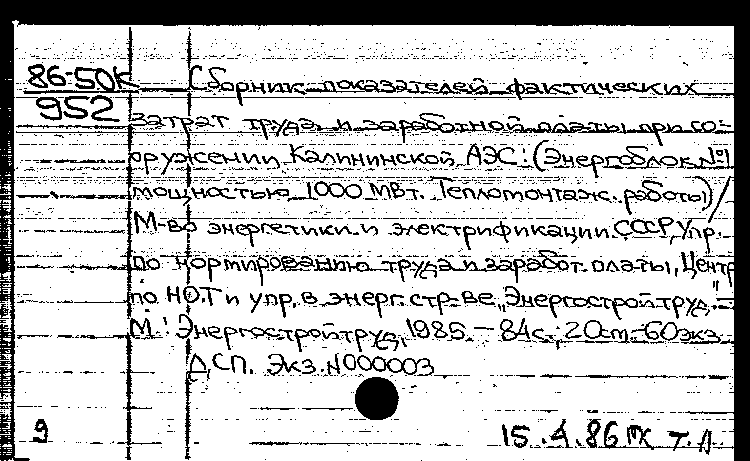 86-50К
952
Сборник показателей фактических
затрат труда и заработной платы при со-
оружении Калининской АЭС: (Энергоблок №1
мощностью 1000 МВт. Тепломонтаж. работы)/
М-во энергетики и электрификации СССР, Упр.
по нормированию труда и заработ. платы, Центр
по НОТ и упр. в энерг. стр-ве „Энергостройтруд". –
М.: Энергостройтруд, 1985. – 84с.; 20см. – 60экз.
ДСП. Экз. №000003
9
15.4.86 т.Л.